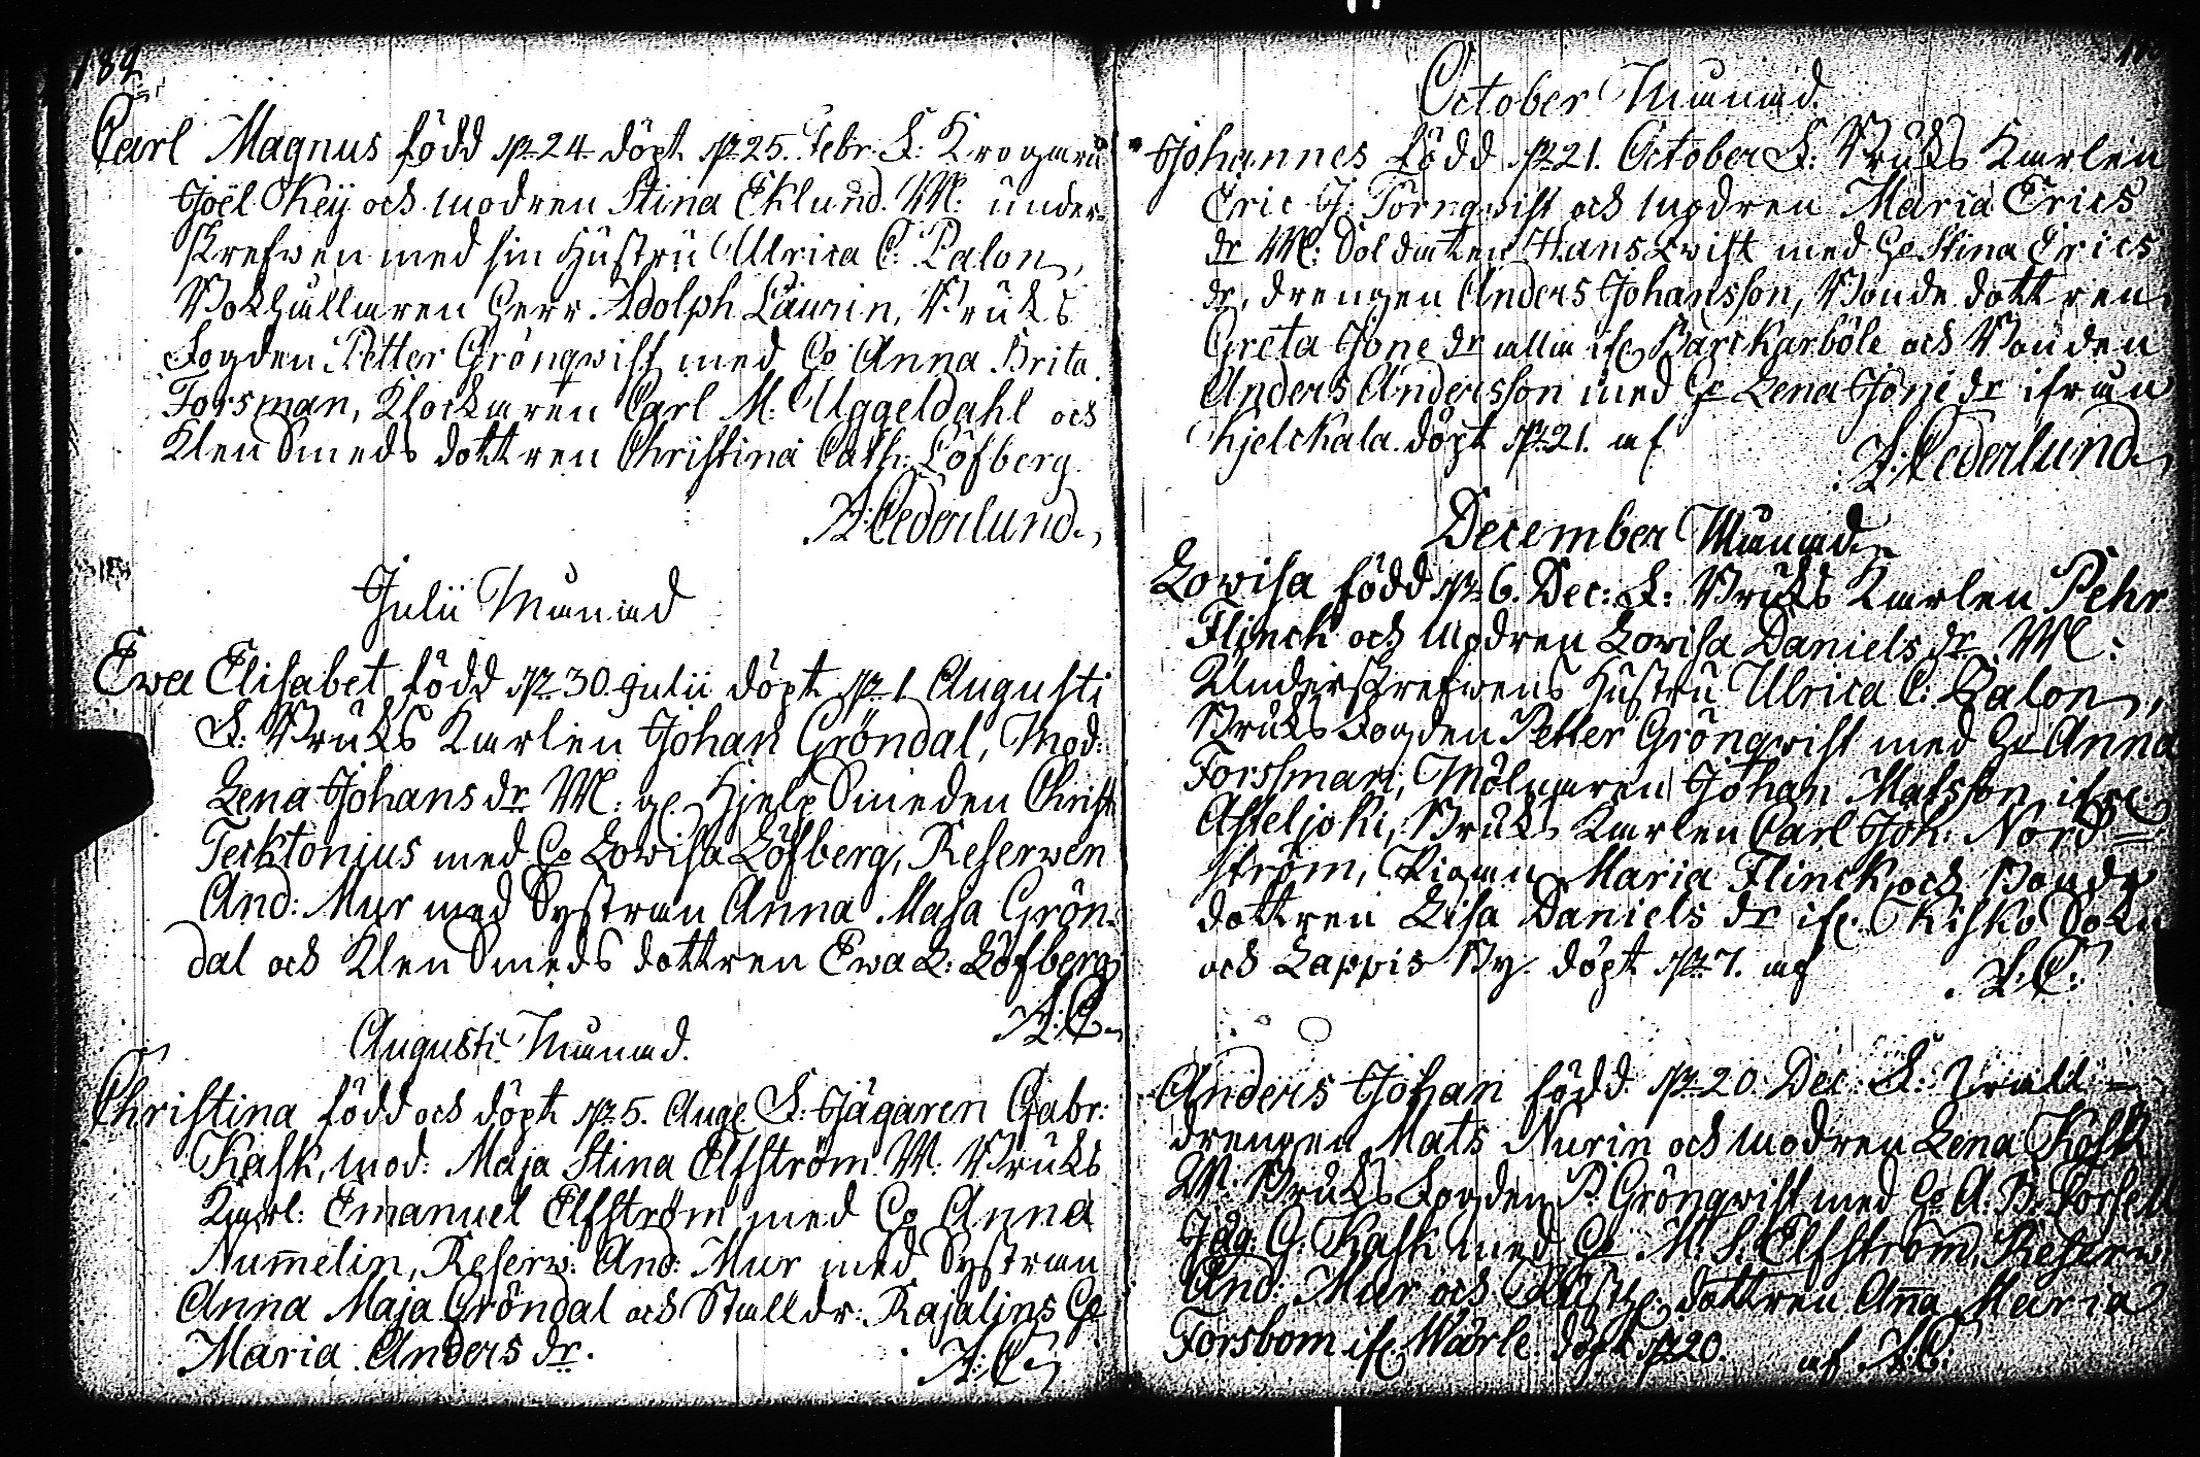 184
Carl Magnus född d. 24 döpt d. 25. Febr. F: Krogaren
Joël Keÿ och modren Stina Eklund. W: under-
skrefwen med sin Hustru Ulrica C: Palon,
Bokhållaren Herr Adolph Laurin, Bruks
Fogden Petter Grönqwist med H. Anna Brita
Forsman, Klockaren Carl M: Uggeldahl och
Klen Smeds dottren Christina Cath: Löfberg.
A: Cederlund.
Julii Månad
Ewa Elisabet född d. 30. Julii döpt d. 1 Augusti
F: Bruks Karlen Johan Gröndal, Mod:
Lena Johans dr W: Hjelp Smeden Christ:
Tecktonius med H. Lowisa Löfberg, Reserwen
And: Mur med Systran Anna Maja Grön-
dal och Klen Smeds dottren Ewa L: Löfberg
A: C.
Augusti Månad.
Christina född och döpt d. 5. Aug. F: Jägaren Gabr:
Kask, mod: Maja Stina Elfström. W: Bruks
Karl: Emanuel Elfström med H. Anna
Num̄elin, Reserw: And: Mur med Systran
Anna Maja Gröndal och Stalldr: Rajalins H.
Maria Anders dr.
A: C.
October Månad.
Johannes född d. 21. October F: Bruks Karlen
Eric J. Törnqwist och modren Maria Erics
dr W: Soldaten Hans Qwist med H. Stina Erics
dr, drengen Anders Johansson, Bonde dottren
Greta Jone dr alla ifr. Barckarböle och Bonden
Anders Andersson med H. Lena Jone dr ifrån
Kjelckala. döpt d. 21. af
A: Cederlund.
December Månad.
Lowisa född d. 6. Dec: F: Bruks Karlen Pehr
Flinck och modren Lowisa Daniels dr W:
Underskrefwens Hustru Ulrica C: Palon,
Bruks Fogden Petter Grönqwist med H. Anna
Forssman, Mölnaren Johan Matsson ifr.
Asteljoki, Bruks Karlen Carl Joh: Nord-
ström, Pigan Maria Flinck och Bonde
dottren Lisa Daniels dr ifr. Kisko Sokn
och Lappis By. döpt d. 7. af
A: C:
Anders Johan född d. 20. Dec: F: Stall-
drengen Mats Nurin och modren Lena Kask
W: Bruks Fogden P. Grönqwist med H. A: B: Forssell
Jäg: G: Kask med H. M: S: Elfström, Reserw:
And: Mur och dottren An̄a Maria
Forsbom ifr. Wärle. döpt d. 20. af A: C: